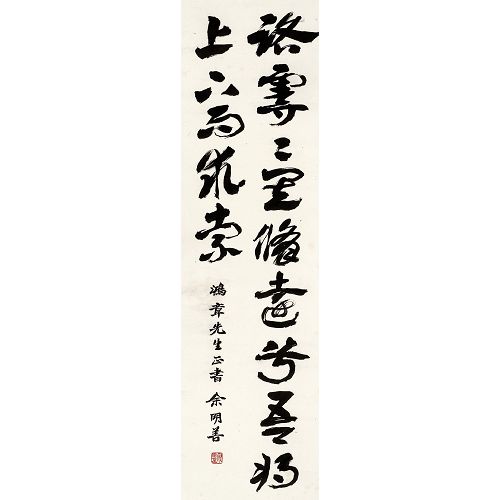 路曼〻其脩遠兮吾將
上下而求索
鴻章先生正書 余明善